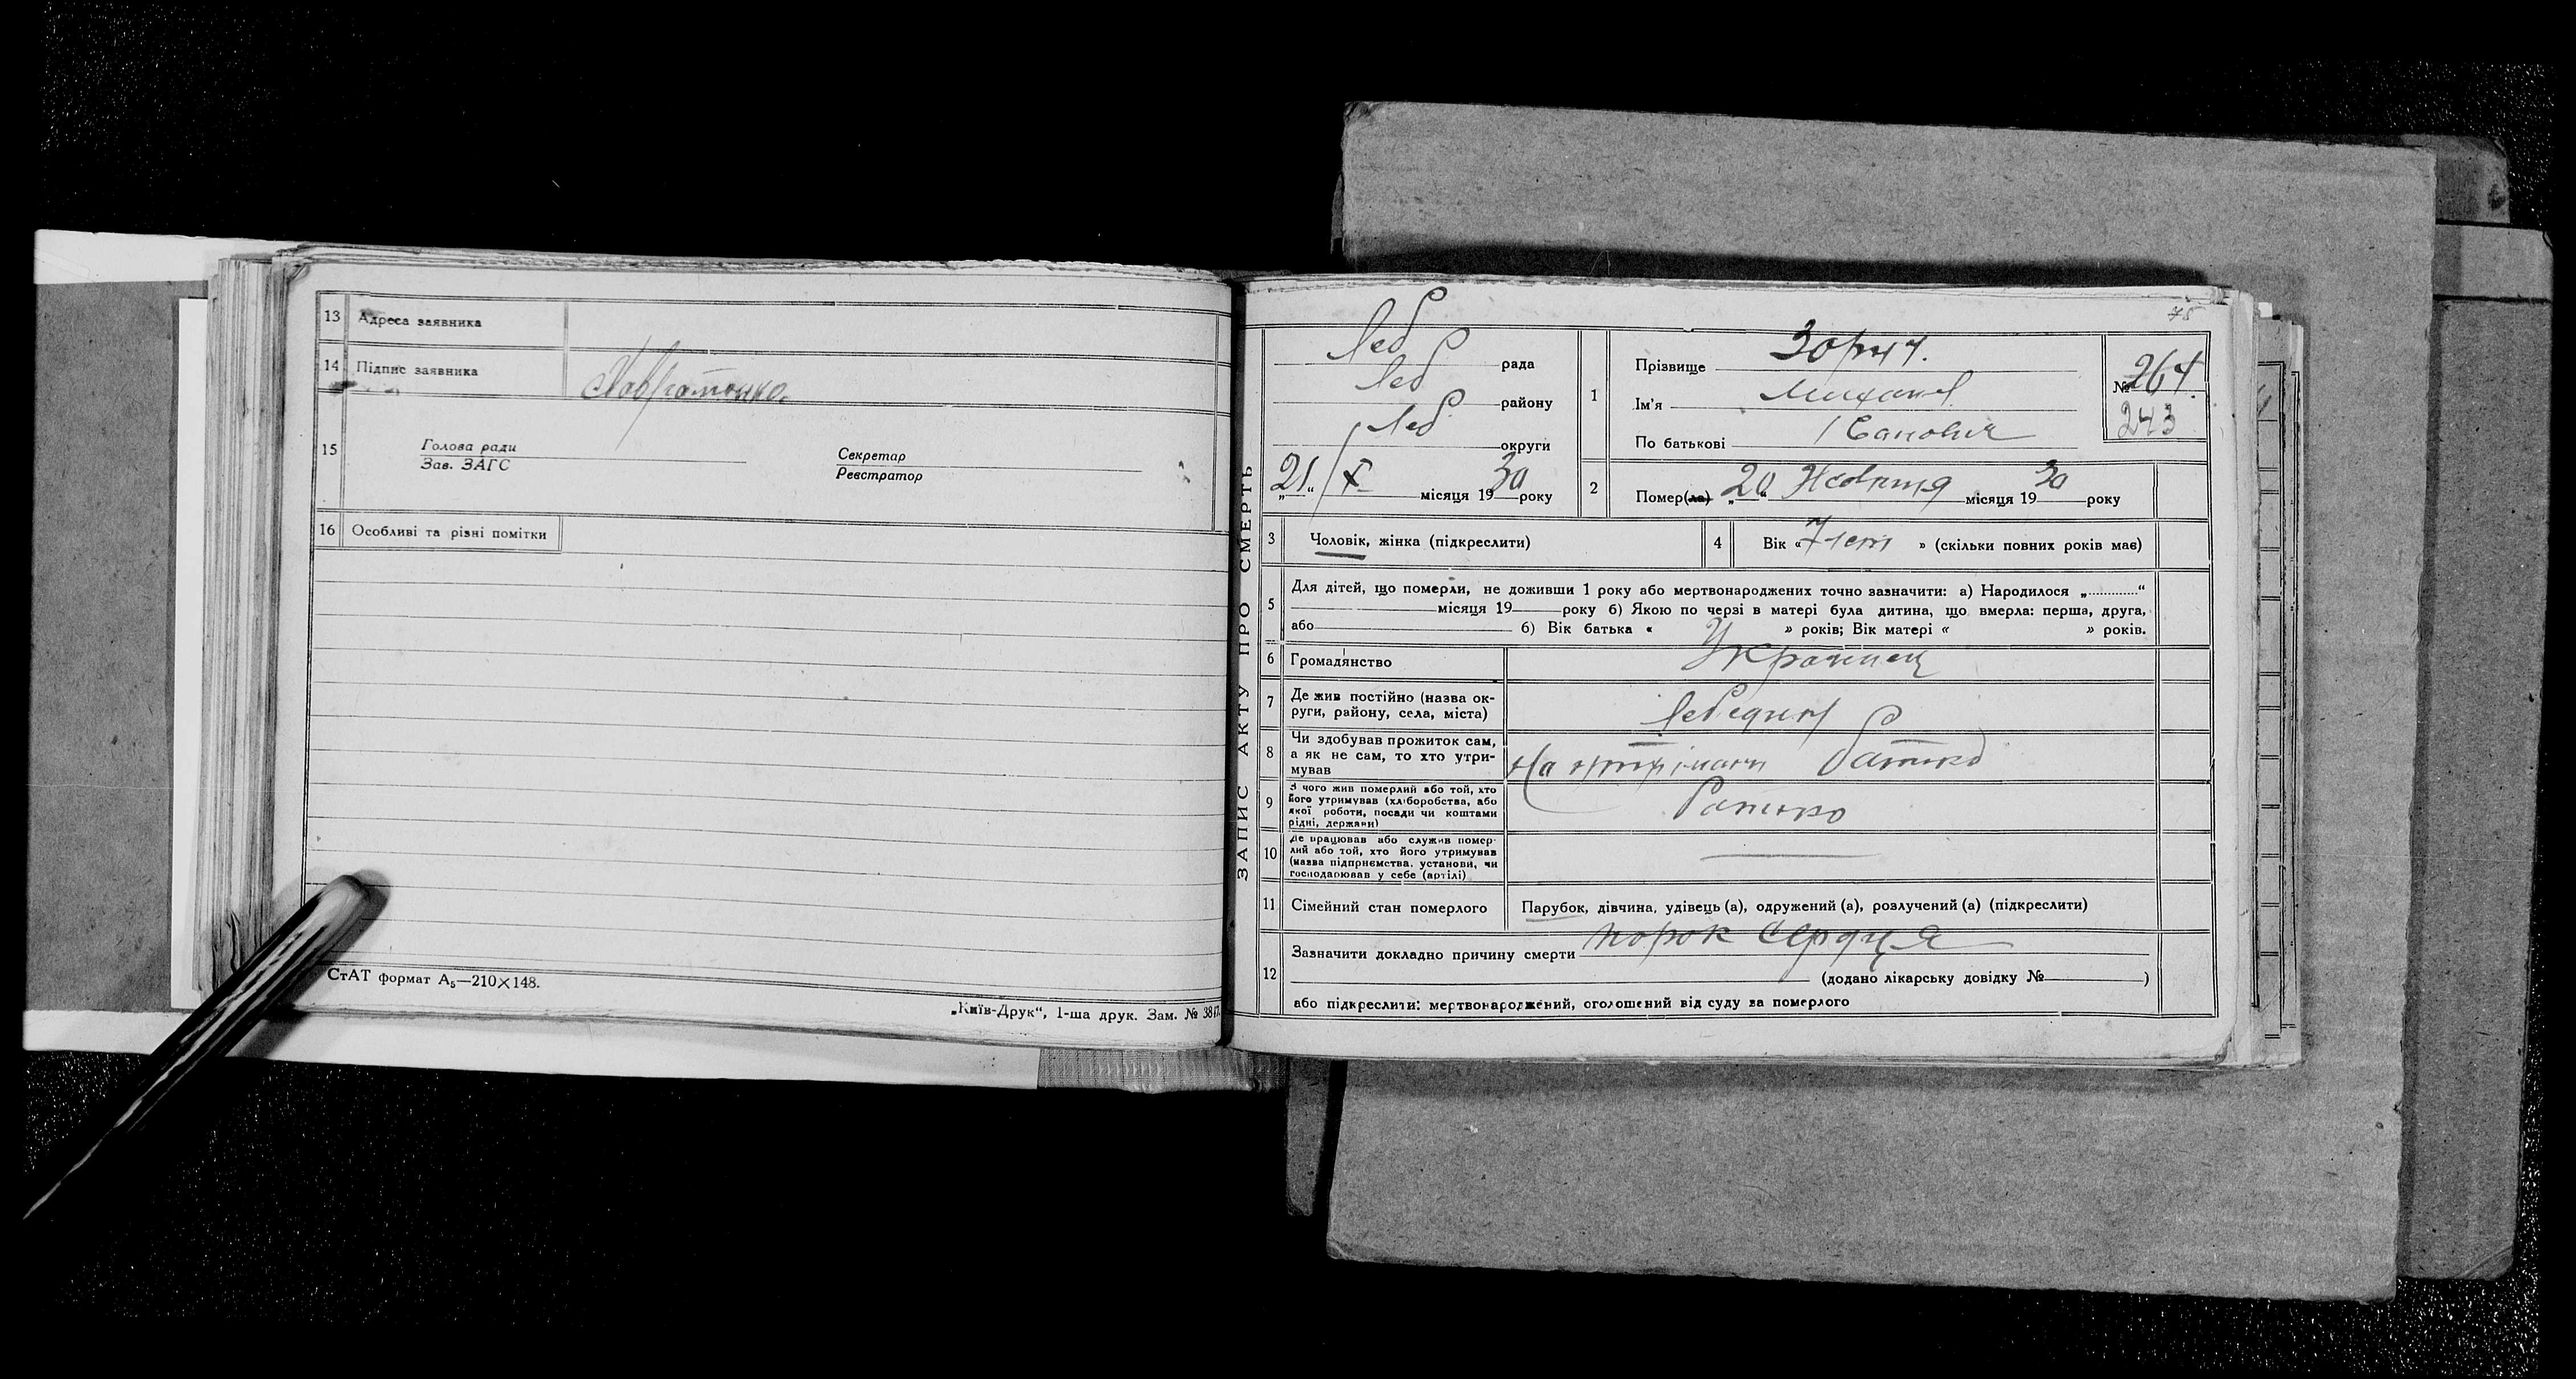 13 Адреса заявника
14 Підпис заявника
15 Голова ради
Зав. ЗАГС
Секретар
Реєстратор
16 Особливі та різні помітки
СтАТ формат А₅—210×148.
„Київ-Друк“, 1-ша друк. Зам. №
ЗАПИС АКТУ ПРО СМЕРТЬ
75
Леб рада
Леб району
Леб округи
„21“ X місяця 1930 року
1 Прізвище
Ім'я Михаил
По батькові Іванович
№ 264.
243
2 Помер(ла) „20“ Жовтня місяця 1930 року
3 Чоловік, жінка (підкреслити)
4 Вік «7 лет» (скільки повних років має)
5 Для дітей, що померли, не доживши 1 року або мертвонароджених точно зазначити: а) Народилося „............“
місяця 19 року б) Якою по черзі в матері була дитина, що вмерла: перша, друга,
або б) Вік батька « » років; Вік матері « » років.
6 Громадянство Украинец
7 Де жив постійно (назва ок-
руги, району, села, міста) Лебедин
8 Чи здобував прожиток сам,
а як не сам, то хто утри-
мував На батько
9 З чого жив померлий або той, хто
його утримував (хліборобства, або
якої роботи, посади чи коштами
рідні, держави) Батько
10 Де працював або служив помер-
лий або той, хто його утримував
(назва підприємства, установи, чи
господарював у себе (артілі)
11 Сімейний стан померлого Парубок, дівчина, удівець (а), одружений (а), розлучений (а) (підкреслити)
12 Зазначити докладно причину смерти порок сердця
(додано лікарську довідку № )
або підкреслити: мертвонароджений, оголошений від суду за померлого